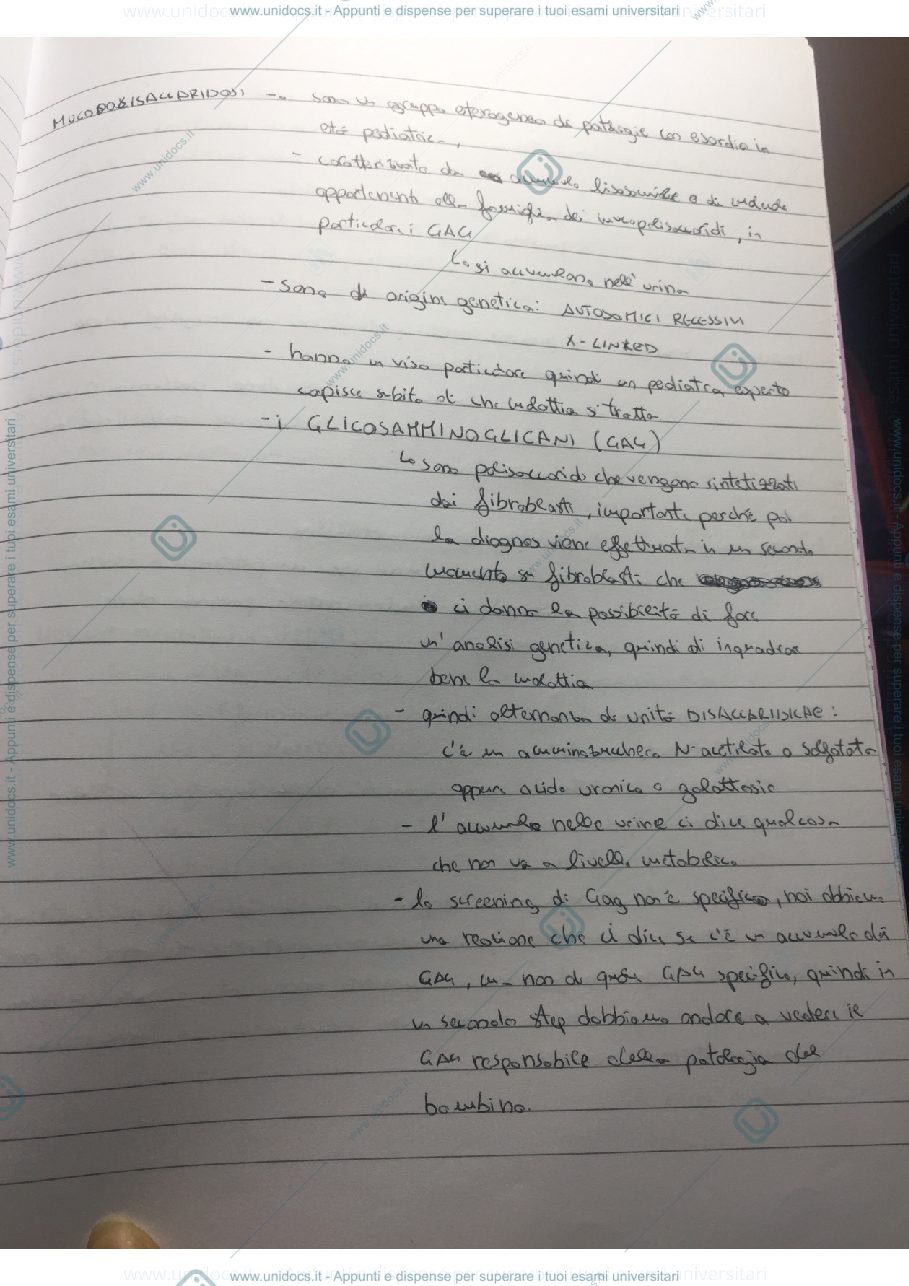 www.unidocs.it - Appunti e dispense per superare i tuoi esami universitari
MUCOPOLISACCARIDOSI → sono un gruppo eterogeneo di patologie con esordio in
età pediatrica,
- caratterizzato da accumulo lisosomiale di
appartenenti alla famiglia dei mucopolisaccaridi, in
particolare i GAG
↳ si accumulano nell'urina
- Sono di origine genetica: AUTOSOMICI RECESSIVI
X-LINKED
- hanno un viso particolare quindi un pediatra esperto
capisce subito di che malattia si tratta
- i GLICOSAMMINOGLICANI (GAG)
↳ sono polisaccaridi che vengono sintetizzati
dai fibroblasti, importanti perché poi
la diagnosi viene effettuata in un secondo
momento su fibroblasti che
ci danno la possibilità di fare
un'analisi genetica, quindi di inquadrare
bene la malattia
- quindi alternanza di unità DISACCARIDICHE:
c'è un amminozucchero N-acetilato o solfatato
oppure acido uronico o galattosio
- l'accumulo nelle urine ci dice qualcosa
che non va a livello metabolico
- lo screening di Gag non è specifico, noi abbiamo
una reazione che ci dice se c'è un accumulo di
GAG, ma non di quale GAG specifico, quindi in
un secondo step dobbiamo andare a vedere il
GAG responsabile della patologia del
bambino.
www.unidocs.it - Appunti e dispense per superare i tuoi esami universitari